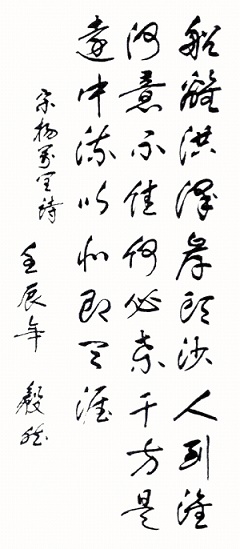 船離洪澤岸頭沙人到淮
河意不佳何必桑干方是
遠中流以北即天涯
宋楊萬里詩
壬辰年 毅